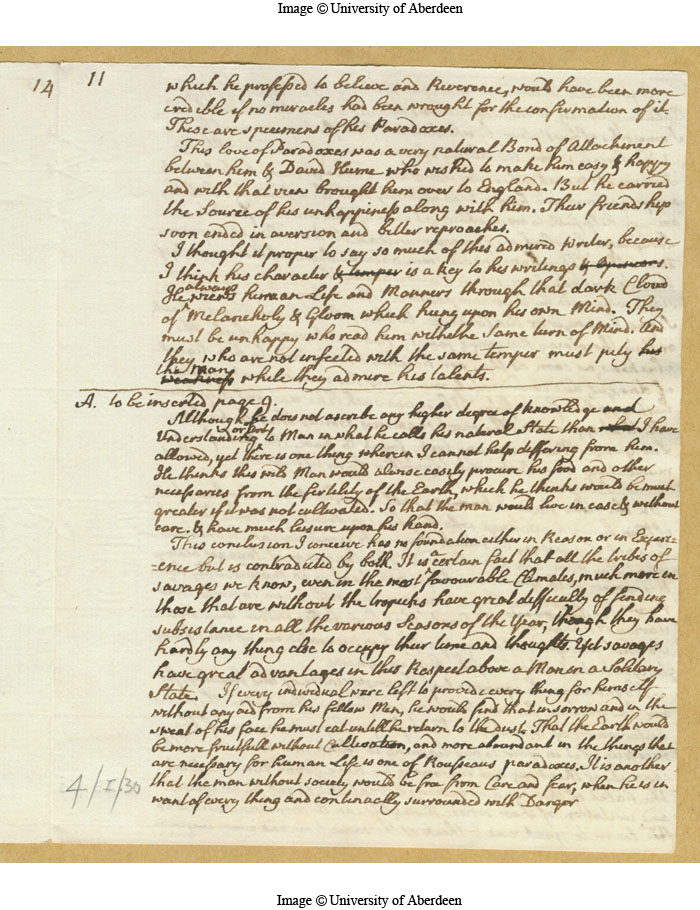 Image © University of Aberdeen
14 11
which he professed to believe and Reverence, would have been more
credible if no miracles had been wrought for the confirmation of it.
These are specimens of his Paradoxes.
This love of Paradoxes was a very natural Bond of Attachment
between him & David Hume who wished to make him easy & happy
and with that view brought him over to England. But he carried
the Source of his unhappiness along with him. Their friendship
soon ended in aversion and bitter reproaches.
I thought it proper to say so much of this admired writer, because
I think his character & temper is a key to his writings & Opinions.
always
He views human Life and Manners through that dark Cloud
of Melancholy & Gloom which hung upon his own Mind. They
must be unhappy who read him with the same turn of Mind. And
they who are not infected with the same temper must pity his
the Man
weakness while they admire his talents.
A. to be inserted page 9.
Although he does not ascribe any higher degree of knowledge and
or art
Understanding to Man in what he calls his natural State than I have
allowed, yet there is one thing wherein I cannot help differing from him.
He thinks this wild Man would always easily procure his food and other
necessaries from the fertility of the Earth, which he thinks would be much
greater if it was not cultivated. So that the man would live in ease & without
care. & have much leisure upon his hand.
This conclusion I conceive has no foundation either in Reason or in Experi=
=ence but is contradicted by both. It is a certain fact that all the tribes of
savages we know, even in the most favourable Climates, much more in
those that are without the tropicks have great difficulty of finding
subsistance in all the various Seasons of the Year, though they have
hardly any thing else to occupy their time and thoughts. Yet savages
have great advantages in this Respect above a Man in a Solitary
State. If every individual were left to provide every thing for himself
without any aid from his fellow Men, he would find that in sorrow and in the
sweat of his face he must eat untill he return to the dust. That the Earth would
be more fruitfull without Cultivation, and more abundant in the things that
are necessary for human Life is one of Rousseaus paradoxes. It is another
that the man without society would be free from Care and fear, when he is in
want of every thing and continually surrounded with Danger
4/I/30
Image © University of Aberdeen